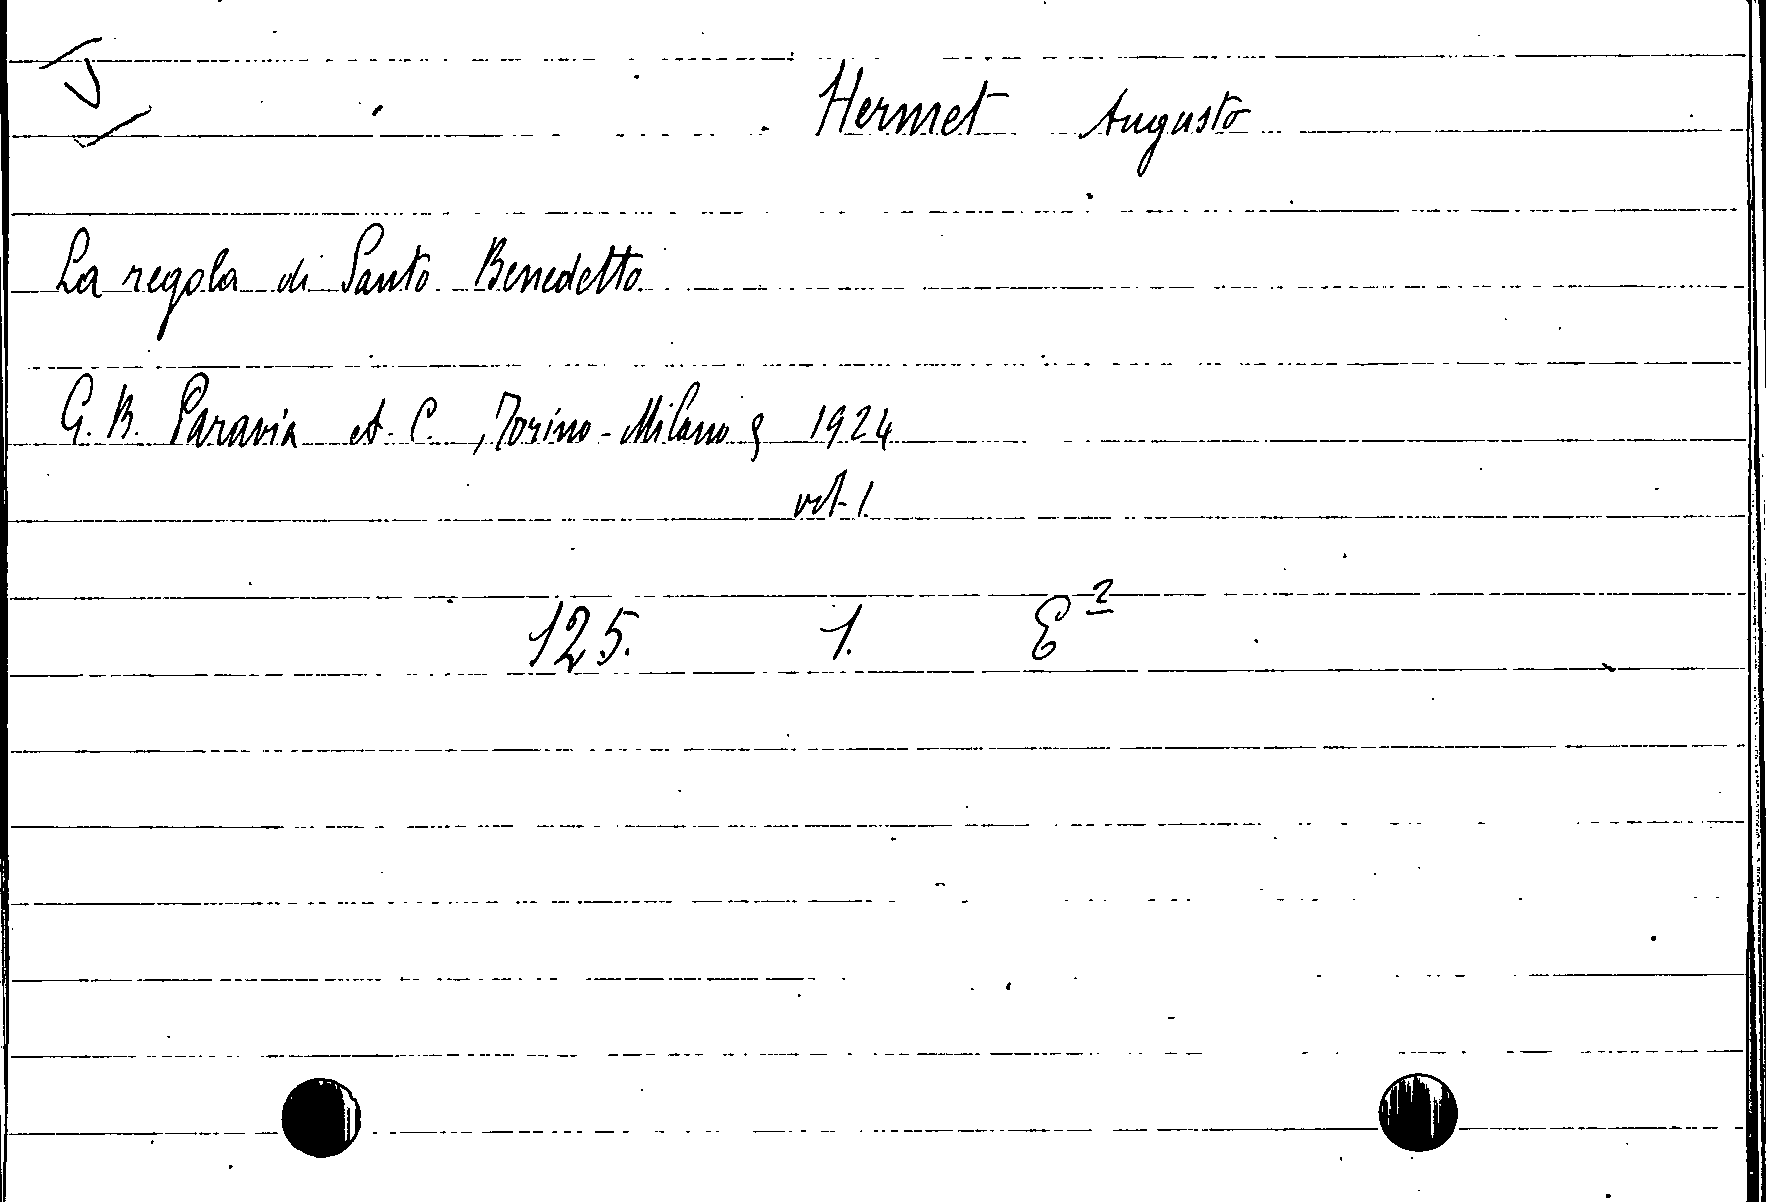 Hermet Augusto
La regola di Santo Benedetto
G. B. Paravia et. C., Torino-Milano, 1924
vol-1.
125. 1. E²